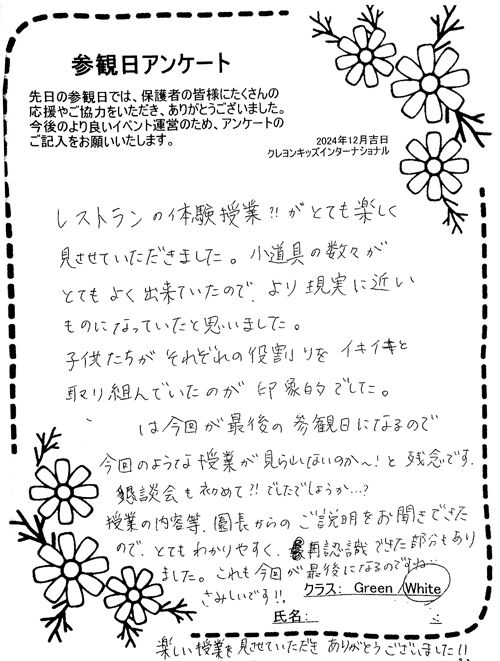 参観日アンケート
先日の参観日では、保護者の皆様にたくさんの
応援やご協力をいただき、ありがとうございました。
今後のより良いイベント運営のため、アンケートの
ご記入をお願いいたします。
2024年12月吉日
クレヨンキッズインターナショナル
レストランの体験授業!!がとても楽しく
見させていただきました。小道具の数々が
とてもよく出来ていたので、より現実に近い
ものになっていたと思いました。
子供たちがそれぞれの役割りをイキイキと
取り組んでいたのが印象的でした。
は今回が最後の参観日になるので
今回のような授業が見られないのか〜!と残念です。
懇談会も初めて!!でしたでしょうか…?
授業の内容等、園長からのご説明をお聞きできた
ので、とてもわかりやすく、再認識できた部分もあり
ました。これも今回が最後になるのですね
さみしいです!!
クラス: Green / White
氏名:
楽しい授業を見せていただきありがとうございました!!